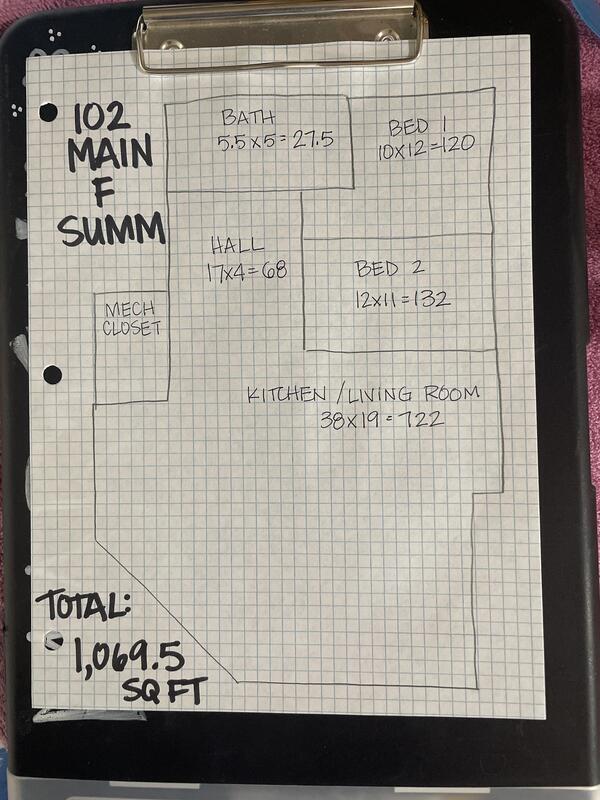 102
MAIN
F
SUMM
BATH
5.5x5=27.5
BED 1
10x12=120
HALL
17x4=68
BED 2
12x11=132
MECH
CLOSET
KITCHEN/LIVING ROOM
38x19=722
TOTAL:
1,069.5
SQ FT